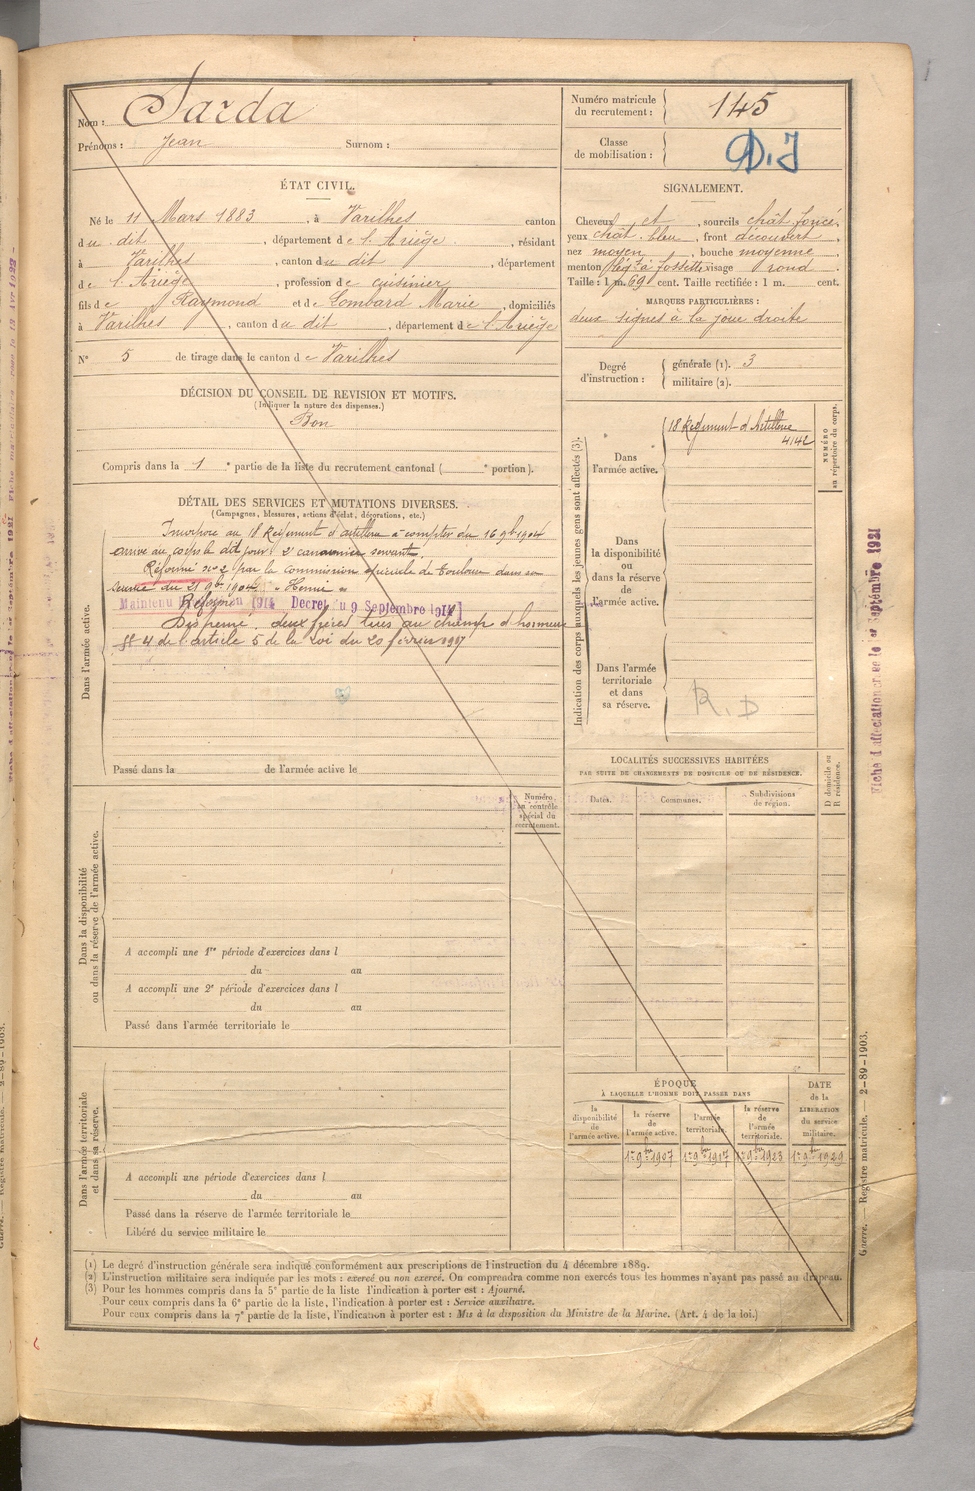 Nom : Sarda
Prénoms : Jean Surnom :
Numéro matricule du recrutement : 145
Classe de mobilisation : D.J
ÉTAT CIVIL.
Né le 11 Mars 1883, à Varilhes canton
du dit, département de l'Ariège, résidant
à Varilhes, canton du dit, département
de l'Ariège, profession de cuisinier
fils de Raymond et de Lombard Marie, domiciliés
à Varilhes, canton du dit, département de l'Ariège
N° 5 de tirage dans le canton de Varilhes
SIGNALEMENT.
Cheveux et, sourcils chât. foncé,
yeux chât. bleu, front découvert,
nez moyen, bouche moyenne
menton à fossette visage rond
Taille : 1 m. 69 cent. Taille rectifiée : 1 m. cent.
MARQUES PARTICULIÈRES :
deux signes à la joue droite
Degré d'instruction : générale (1). 3
militaire (2).
DÉCISION DU CONSEIL DE REVISION ET MOTIFS.
(Indiquer la nature des dispenses.)
Bon
Compris dans la 1e partie de la liste du recrutement cantonal ( e portion).
DÉTAIL DES SERVICES ET MUTATIONS DIVERSES.
(Campagnes, blessures, actions d'éclat, décorations, etc.)
Dans l'armée active.
Incorporé au 18 Régiment d'artillerie à compter du 16 9bre 1904
arrivé au corps le dit jour 2e canonnier servant.
Réformé no 2 par la commission spéciale de Toulouse dans sa
séance du 21 9bre 1904 « Hernie »
Maintenu Réformé 1914 Decret du 9 Septembre 1914
Dispensé. deux frères tués au champ d'honneur
§ 4 de l'article 5 de la loi du 20 février 1917
Passé dans la de l'armée active le
Indication des corps auxquels les jeunes gens sont affectés (3).
NUMÉRO au répertoire du corps.
Dans l'armée active.
18 Régiment d'Artillerie
4142
Dans la disponibilité ou dans la réserve de l'armée active.
Dans l'armée territoriale et dans sa réserve.
R.D
LOCALITÉS SUCCESSIVES HABITÉES
PAR SUITE DE CHANGEMENTS DE DOMICILE OU DE RÉSIDENCE.
Dates. Communes. Subdivisions de région. D domicile ou R résidence.
Dans la disponibilité ou dans la réserve de l'armée active.
Numéro au contrôle spécial du recrutement.
A accompli une 1re période d'exercices dans l
du au
A accompli une 2e période d'exercices dans l
du au
Passé dans l'armée territoriale le
Dans l'armée territoriale et dans sa réserve.
A accompli une période d'exercices dans l
du au
Passé dans la réserve de l'armée territoriale le
Libéré du service militaire le
ÉPOQUE
À LAQUELLE L'HOMME DOIT PASSER DANS
la disponibilité de l'armée active. la réserve de l'armée active. l'armée territoriale. la réserve de l'armée territoriale.
DATE de la LIBÉRATION du service militaire.
1er 9bre 1907 1er 9bre 1917 1er 9bre 1923 1er 9bre 1929
(1) Le degré d'instruction générale sera indiqué conformément aux prescriptions de l'instruction du 4 décembre 1889.
(2) L'instruction militaire sera indiquée par les mots : exercé ou non exercé. On comprendra comme non exercés tous les hommes n'ayant pas passé au drapeau.
(3) Pour les hommes compris dans la 5e partie de la liste l'indication à porter est : Ajourné.
Pour ceux compris dans la 6e partie de la liste, l'indication à porter est : Service auxiliaire.
Pour ceux compris dans la 7e partie de la liste, l'indication à porter est : Mis à la disposition du Ministre de la Marine. (Art. 4 de la loi.)
Guerre. — Registre matricule. — 2-89-1903.
Fiche d'affectation créée le 1er Septembre 1921